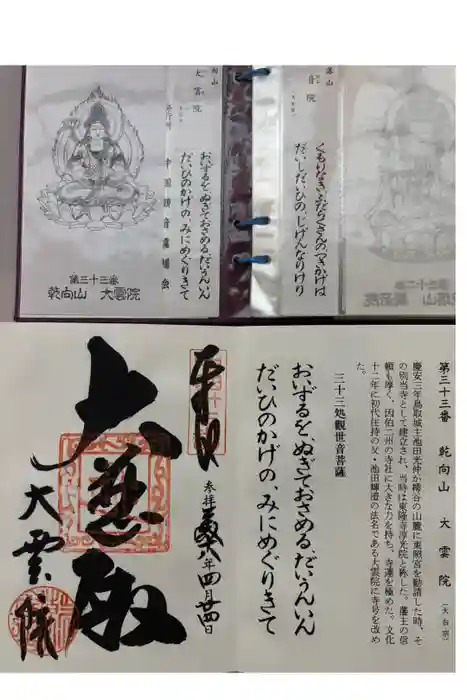 大雲院
中国観音霊場会
おいずるを、ぬぎておさめる、だいうんいん
だいひのかげの、みにめぐりきて
第三十三番
乾向山 大雲院
くもりなき、ふだらくさんの、つきかげは
だいしだいひの、じげんなりけり
第三十三番 乾向山 大雲院 (天台宗)
慶安三年鳥取城主池田光仲が樗谷の山麓に東照宮を勧請した時、そ
の別当寺として建立され、当時は東隆寺淳光院と称した。藩主の信
頼も厚く、因伯二州の寺社に大きな力を持ち、寺運を極めた。文化
十二年に初代住持の父・池田輝澄の法名である大雲院に寺号を改め
た。
三十三処観世音菩薩
おいずるを、ぬぎておさめる、だいうんいん
だいひのかげの、みにめぐりきて
奉拝
参拝 八年四月廿四日
大悲殿
大雲院